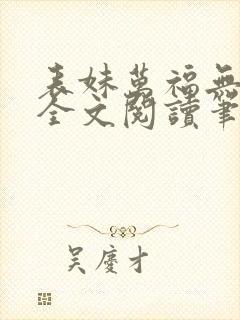 表妹萬福無
全文閱讀筆
吴慶才